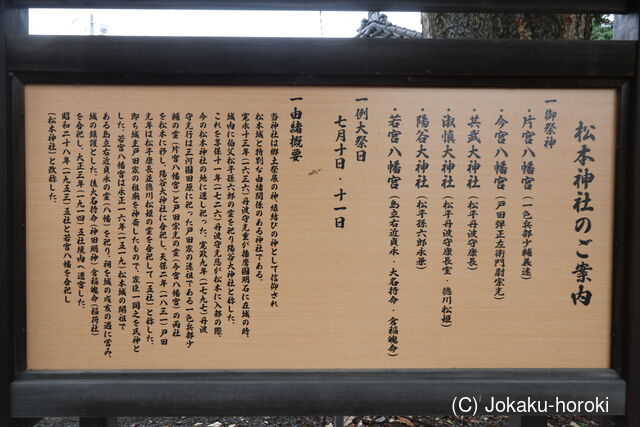 松本神社のご案内
一御祭神
・片宮八幡宮(一色兵部少輔義遠)
・今宮八幡宮(戸田弾正左衛門尉宗光)
・共武大神社(松平丹波守康長)
・淑慎大神社(松平丹波守康長室・徳川松姫)
・陽谷大神社(松平孫六郎永兼)
・若宮八幡宮(島立右近貞永・大名持命・倉稲魂命)
一例大祭日
七月十日・十一日
一由緒概要
当神社は郷土発展の神、縁結びの神として信仰され
松本城と特別な由緒関係のある神社である。
寛永十三年(一六三六)丹波守光重が播磨国明石に在城の時、
城内に伯父松平孫六郎の霊を祀り陽谷大神社と称した。
これを享保十一年(一七二六)丹波守光慈が松本に入部の際、
今の松本神社の地に遷し祀った。寛政九年(一七九七)丹波
守光行は三河国田原に祀った戸田家の遠祖である一色兵部少
輔の霊(片宮八幡宮)と戸田宗光の霊(今宮八幡宮)の両社
を松本に移し、陽谷大神社に合祀し、天保二年(一八三一)戸田
光年は松平康長並徳川松姫の霊を合祀して(五社)と称した。
即ち城主戸田家の祖廟を神斎したもので、家臣一同之を氏神と
した。若宮八幡宮は永正一六年(一五一九)松本城の開祖で
ある島立右近貞永の霊(八幡)を祀り、祠を城の戌亥の週に営み、
城の鎮護とした。後大名持命(神田明神)倉稲魂命(稲荷社)
を合祀し、大正三年(一九一四)五社境内へ遷宮した。
昭和二十八年(一九五三)五社と若宮八幡を合祀し
(松本神社)と改称した。
(C) Jokaku-horoki